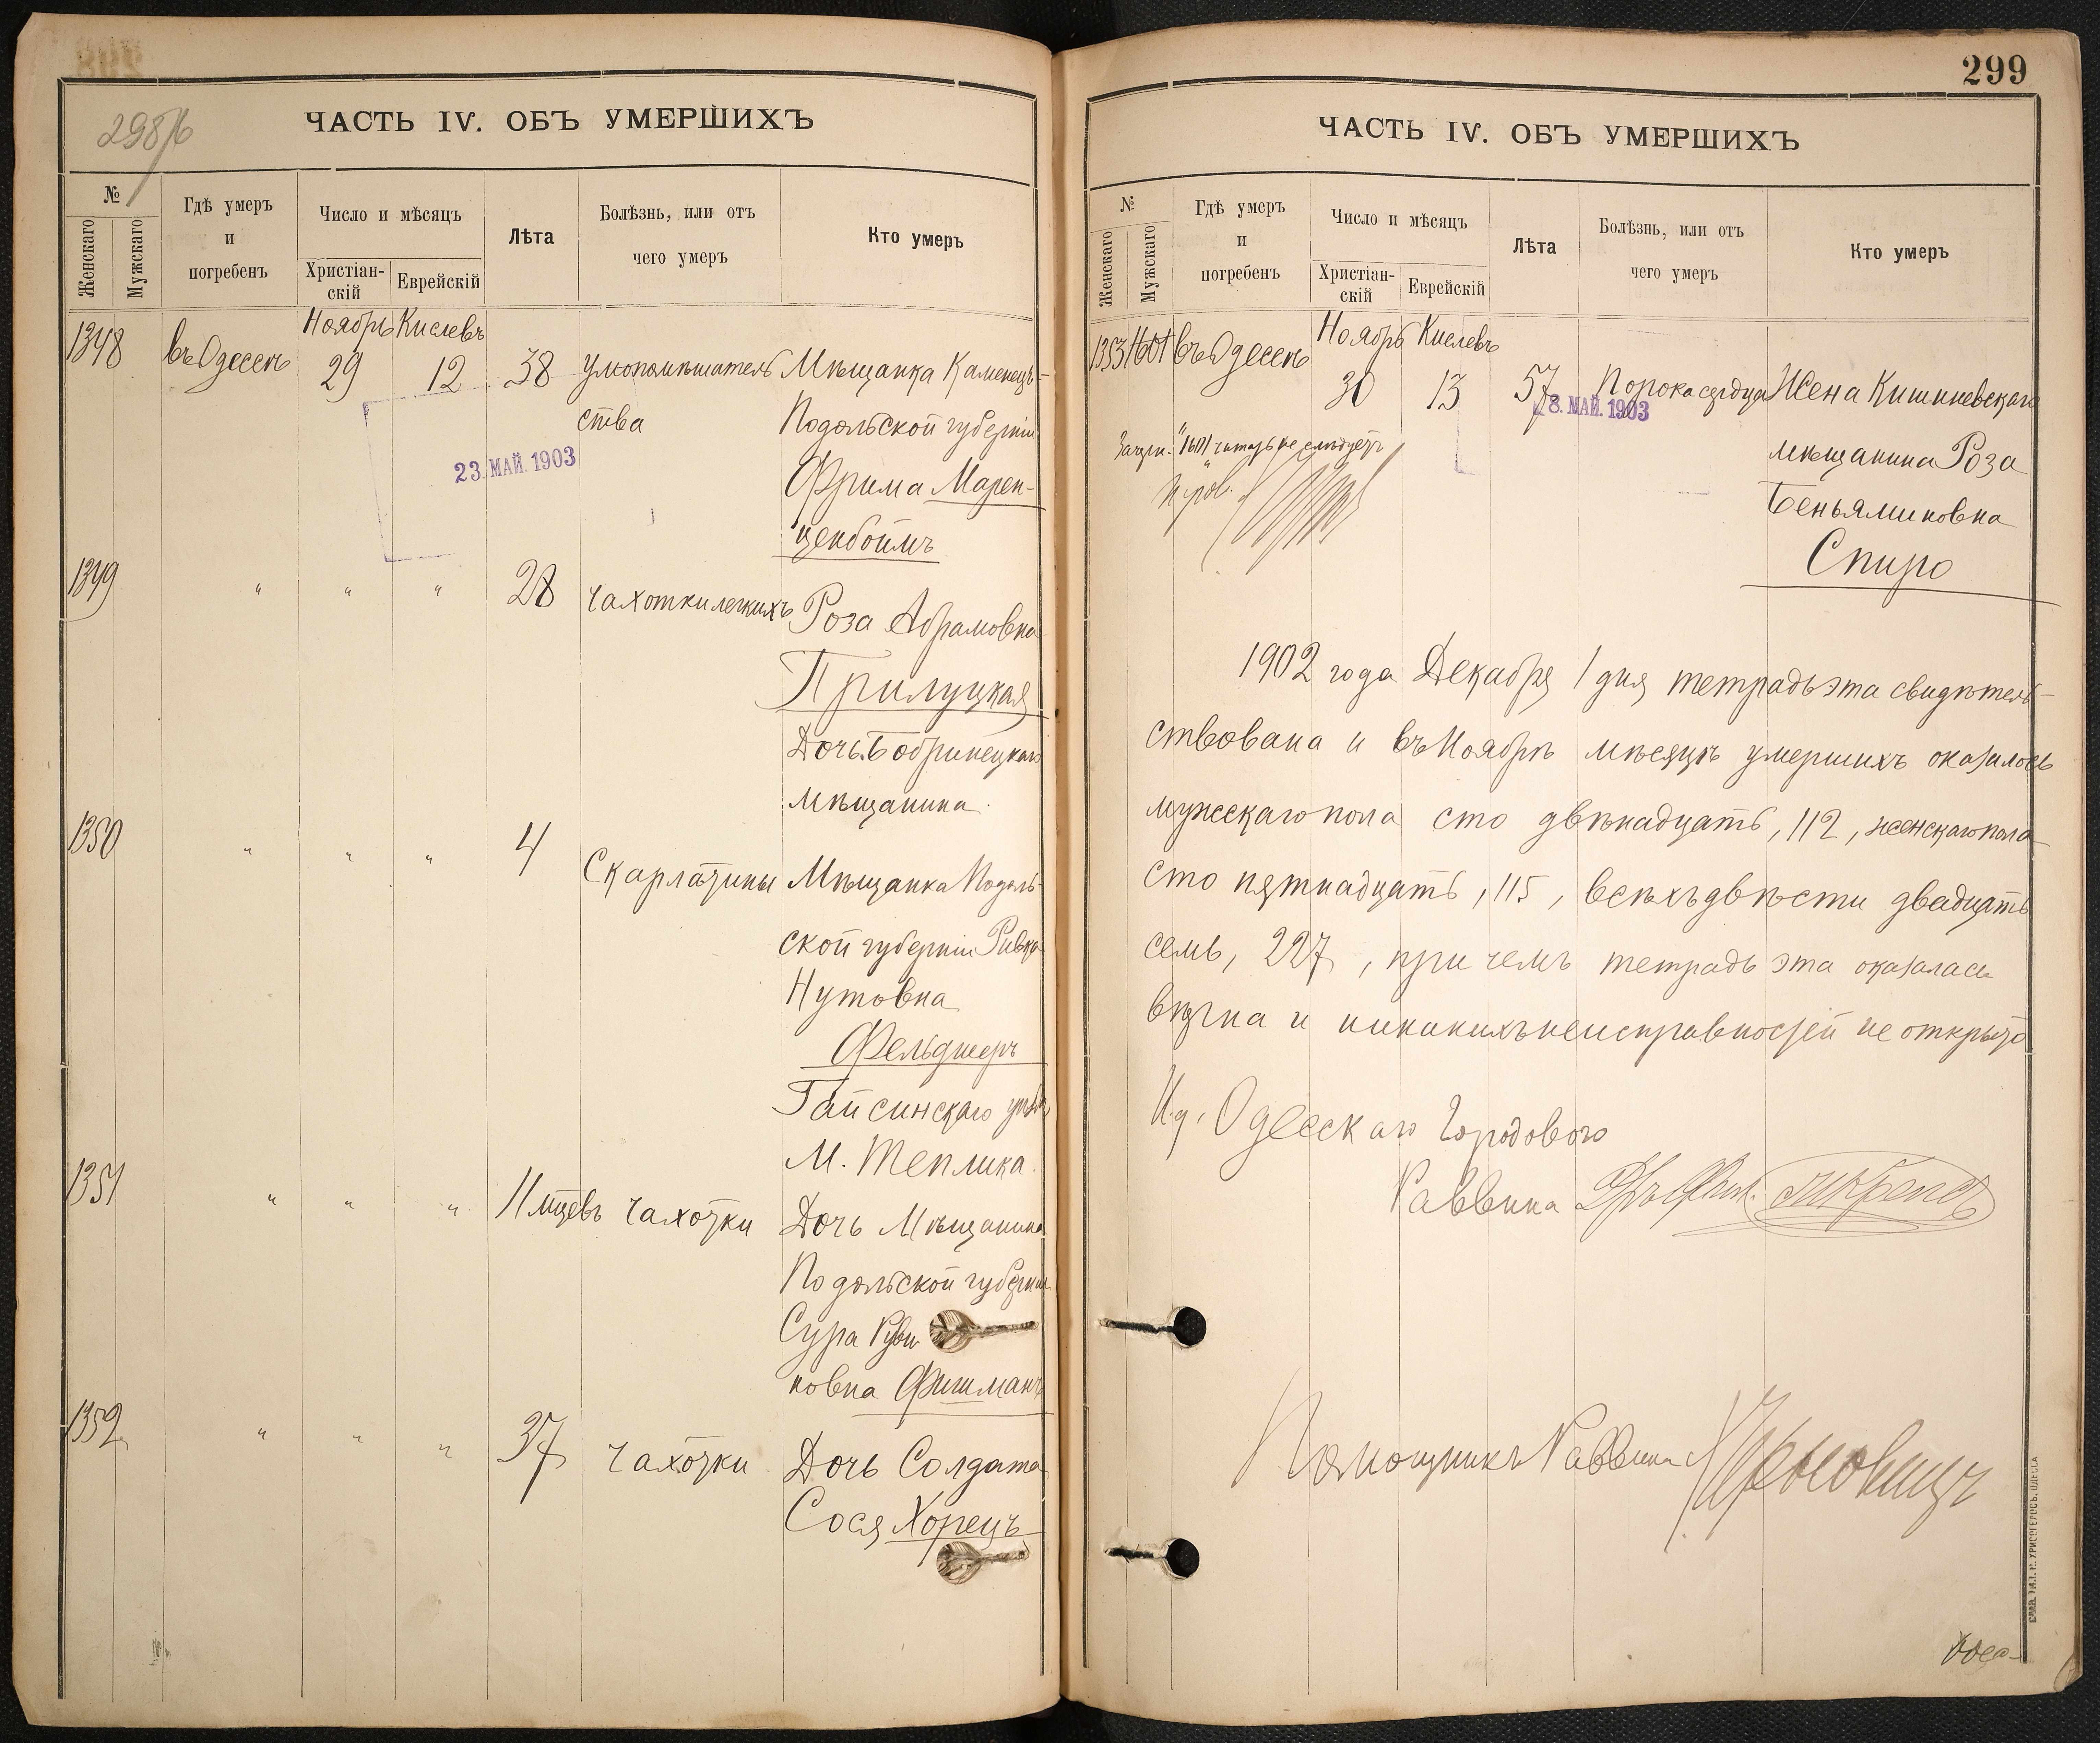 298/б
ЧАСТЬ IV. ОБЪ УМЕРШИХЪ
№
Женскаго
Мужскаго
Гдѣ умеръ
и
погребенъ
Число и мѣсяцъ
Христіан-
скій
Еврейскій
Лѣта
Болѣзнь, или отъ
чего умеръ
Кто умеръ
Ноябрь Кислевъ
1348 въ Одессѣ 29 12 38 умопомѣшатель Мѣщанка Каменецъ-
ства Подольской губерніи
23. МАЙ. 1903
Фрима Марен-
ценбоймъ
1349 " " " 28 чахотки легкихъ Роза Абрамовна
Прилуцкая
Дочь Бобринецкаго
мѣщанина.
1350 " " " 4 Скарлатины Мѣщанка Подоль-
ской губерніи Ривка
Нутовна
Фельдшеръ
Гайсинскаго уѣзда
М. Теплика.
1351 " " " 11 мцевъ чахотки Дочь Мѣщанина
Подольской губерніи
Сура Руви
новна Фишманъ
1352 " " " 37 чахотки Дочь Солдата
Сося Хорецъ
299
ЧАСТЬ IV. ОБЪ УМЕРШИХЪ
№
Женскаго
Мужскаго
Гдѣ умеръ
и
погребенъ
Число и мѣсяцъ
Христіан-
скій
Еврейскій
Лѣта
Болѣзнь, или отъ
чего умеръ
Кто умеръ
Ноябрь Кислевъ
1353 1601 въ Одессѣ 30 13 57 Порока сердца Жена Кишиневскаго
8. МАЙ. 1903
Зачерк. "1601" читать не слѣдуетъ
мѣщанина Роза
Беньяминовна
Спиро
1902 года Декабря 1 дня тетрадь эта свидѣтель-
ствована и въ Ноябрѣ мѣсяцѣ умершихъ оказалось
мужескаго пола сто двѣнадцать, 112, женскаго пола
сто пятнадцать, 115, всѣхъ двѣсти двадцать
семь, 227, при чемъ тетрадь эта оказалась
вѣрна и никакихъ неисправностей не открыто
И.д. Одесскаго Городового
Раввина
Помощникъ Раввина